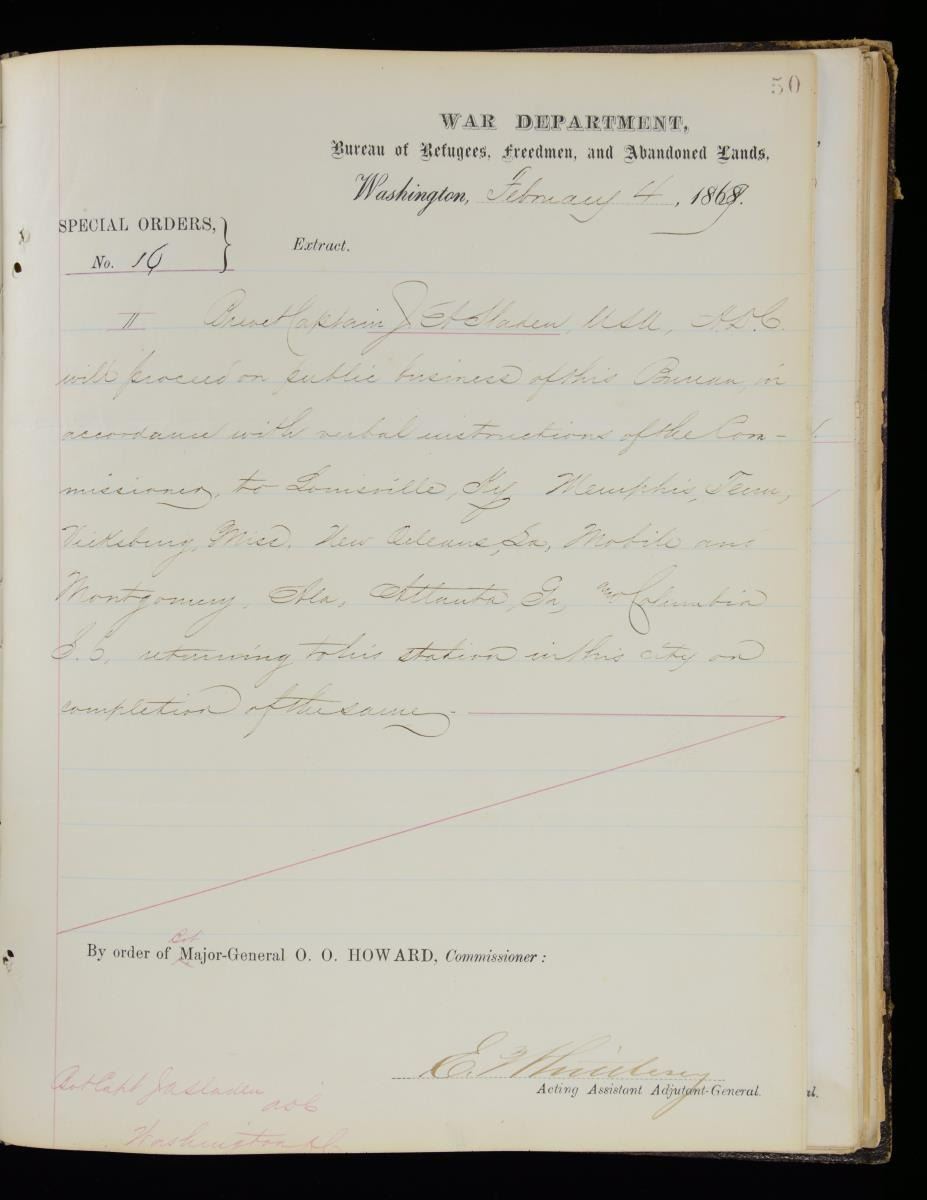 50
WAR DEPARTMENT,
Bureau of Refugees, Freedmen, and Abandoned Lands,
Washington, February 4, 1869.
SPECIAL ORDERS,
No. 16
Extract.
II Brevet Captain J. A. Sladen, USA, A.D.C.
will proceed on public business of this Bureau, in
accordance with verbal instructions of the Com-
missioner, to Louisville, Ky. Memphis, Tenn,
Vicksburg, Miss. New Orleans, La, Mobile and
Montgomery, Ala, Atlanta, Ga, and Columbia
S.C. returning to his station in this city on
completion of the same.
By order of Bvt Major-General O. O. HOWARD, Commissioner:
E. Whittlesey
Acting Assistant Adjutant-General.
al.
Bvt Capt J A Sladen
ADC
Washington DC